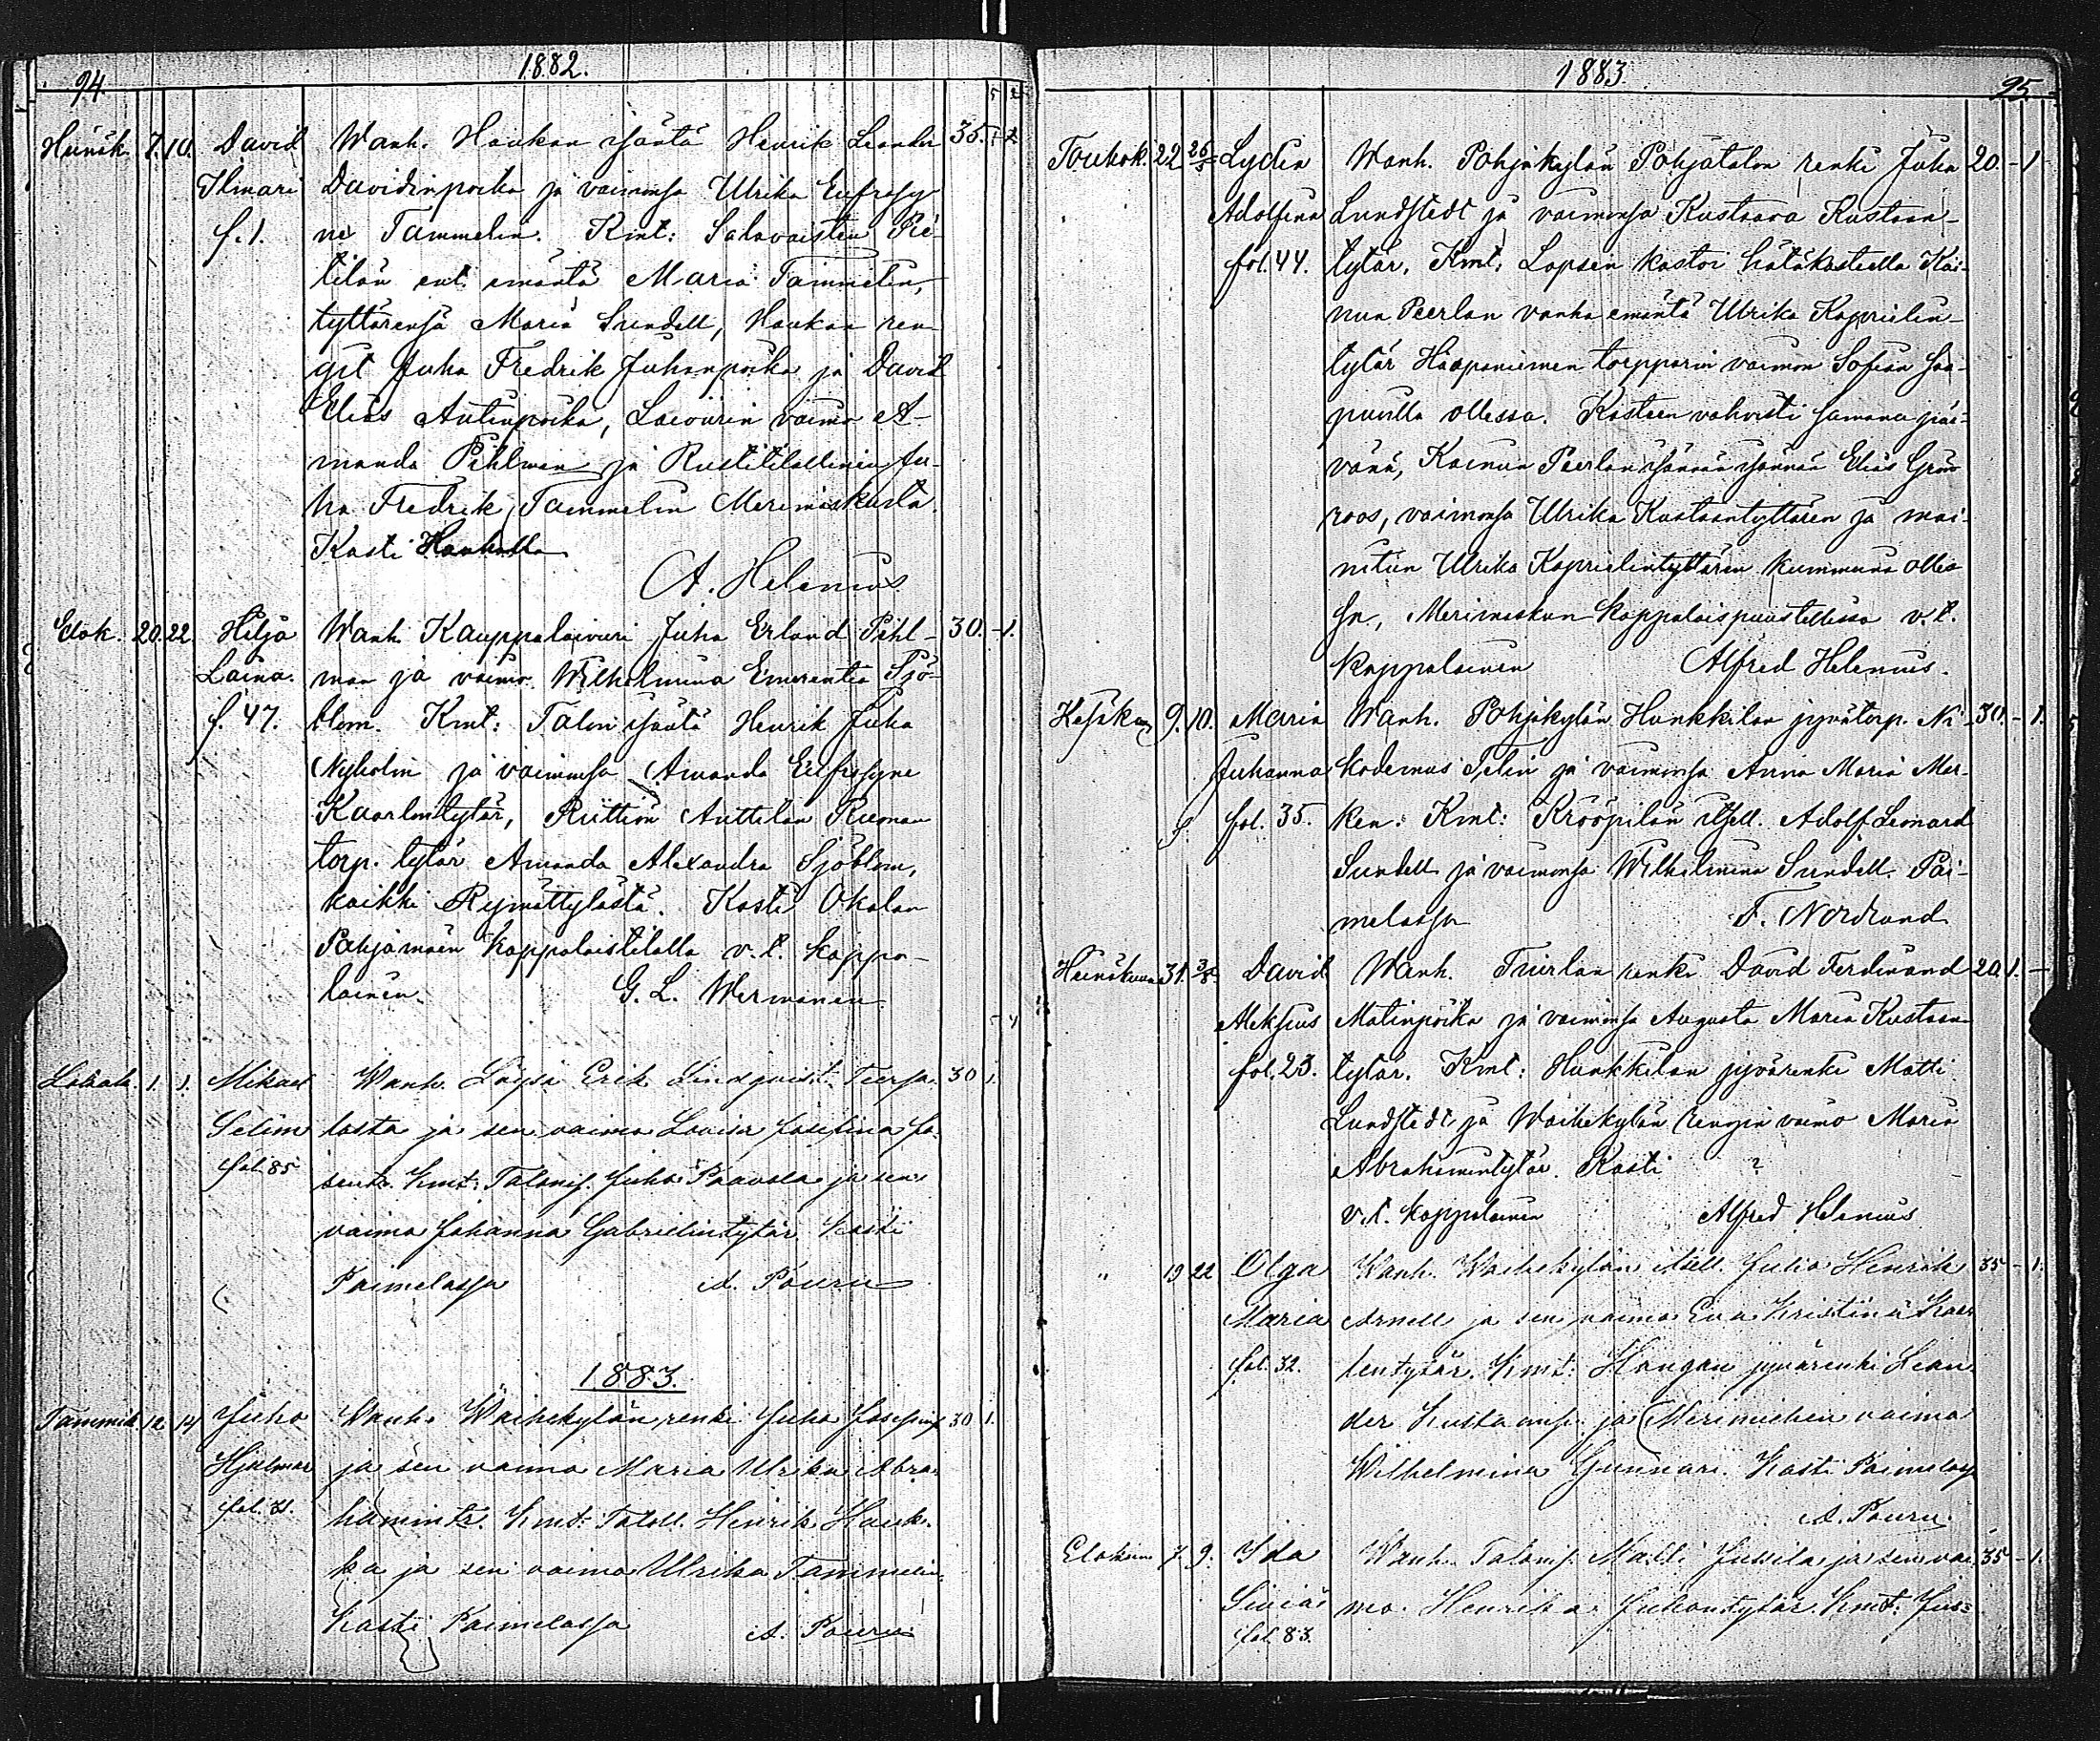 94
1882.
Heinäk. 7. 10. David Wanh. Haukan isäntä Henrik Leander 35. - 1
Ilmari Davidinpoika ja vaimonsa Ulrika Eufrosy-
f. 1. ne Tammelin. Kmt: Salavaisten Pie-
tilän ent. emäntä Maria Tammelin,
tyttärensä Maria Sundell, Haukan ren-
git Juha Fredrik Juhanpoika ja David
Elias Antinpoika, Laivurin vaimo A-
manda Pihlman ja Rustitilallinen Ju-
ha Fredrik Tammelin Merimaskusta.
Kasti Haukalla
A. Helenius
Elok. 20. 22. Hilja Wanh. Kauppalaivuri Juha Erland Pihl- 30. - 1.
Laina. man ja vaimo Wilhelmina Emerentia Sjö-
f. 47. blom. Kmt: Talon isäntä Henrik Juha
Nyholm ja vaimonsa Amanda Eufrosyne
Kaarlentytär, Riittiön Anttilan
torp. tytär Amanda Alexandra Sjöblom,
kaikki Rymättylästä. Kasti Okolan
Pohjamäen kappalaistilalla v.t. kappa-
lainen. G. L. Wermanen
Lokak. 1. 1. Mikael Wanh. Erik Lindqvist 30 1.
Selim lasta ja sen vaimo Lovisa Josefina Jo-
fol. 85 Kmt: Talonis. Juho Paavola ja sen
vaimo Johanna Gabrielintytär Kasti
Paimelassa A. Pouru
1883.
Tammik. 12. 14 Juho Wanh. Waihekylän renki Juha Josefinp. 30 1.
Hjalmar ja sen vaimo Maria Ulrika Abra-
fol. 31. hamintr. Kmt: Taloll. Henrik Hauk-
ka ja sen vaimo Ulrika Tammelin.
Kasti Paimelassa A. Pouru
1883.
95
Toukok. 22 26/5 Lydia Wanh. Pohjakylän Pohjatalon renki Juha 20. - 1
Adolfina Lundstedt ja vaimonsa Kustaava Kustaan-
fol. 44. tytär. Kmt. Lapsen kastoi hätäkasteella Kai-
nun Peerlan vanha emäntä Ulrika Kaprielin-
tytär Haapaniemen torpparin vaimon Sofian saa-
puvilla ollessa. Kasteen vahvisti samana päi-
vänä, Kainun Peerlan isännän isännän Elias Grön-
roos, vaimonsa Ulrika Kustaantyttären ja mai-
nitun Ulrika Kaprielintyttären kummina olles-
sa, Merimaskun kappalaispuustellissa v.t.
kappalainen Alfred Helenius.
Kesäkuu 9. 10. Maria Wanh. Pohjakylän Hunkkilan jyvätorp. Ni- 30. - 1.
Juhanna kodemus Telin ja vaimonsa Anna Maria Mar-
fol. 35. ken. Kmt: Krööpilän itsell. Adolf Leonard
Sundell ja vaimonsa Wilhelmina Sundell. Pai-
melassa F. Nordlund
Heinäkuu 31. 3/8. David Wanh. renki David Ferdinand 20. 1. -
Aleksius Matinpoika ja vaimonsa Augusta Maria Kustaan-
fol. 23. tytär. Kmt: Hunkkilan jyvärenki Matti
Lundstedt ja Waihekylän rengin vaimo Maria
Abrahamintytär. Kasti ?
v.t. kappalainen Alfred Helenius
" 19 22 Olga Wanh. Waihekylän itsell. Juho Henrik 35 - 1.
Maria Arnell ja sen vaimo Eva Kristina Kaar-
fol. 32. lentytär. Kmt: Haugan jyvärenki Lean-
der Kustaanp. ja Merimiehen vaimo
Wilhelmina Gunnari. Kasti Paimelas
A. Pouru.
Elokuu 7. 9. Ida Wanh. Talonis. Matti Jussila ja sen vai- 35 - 1.
Siviä mo Henrika Juhontytär. Kmt: Jus-
fol. 83.